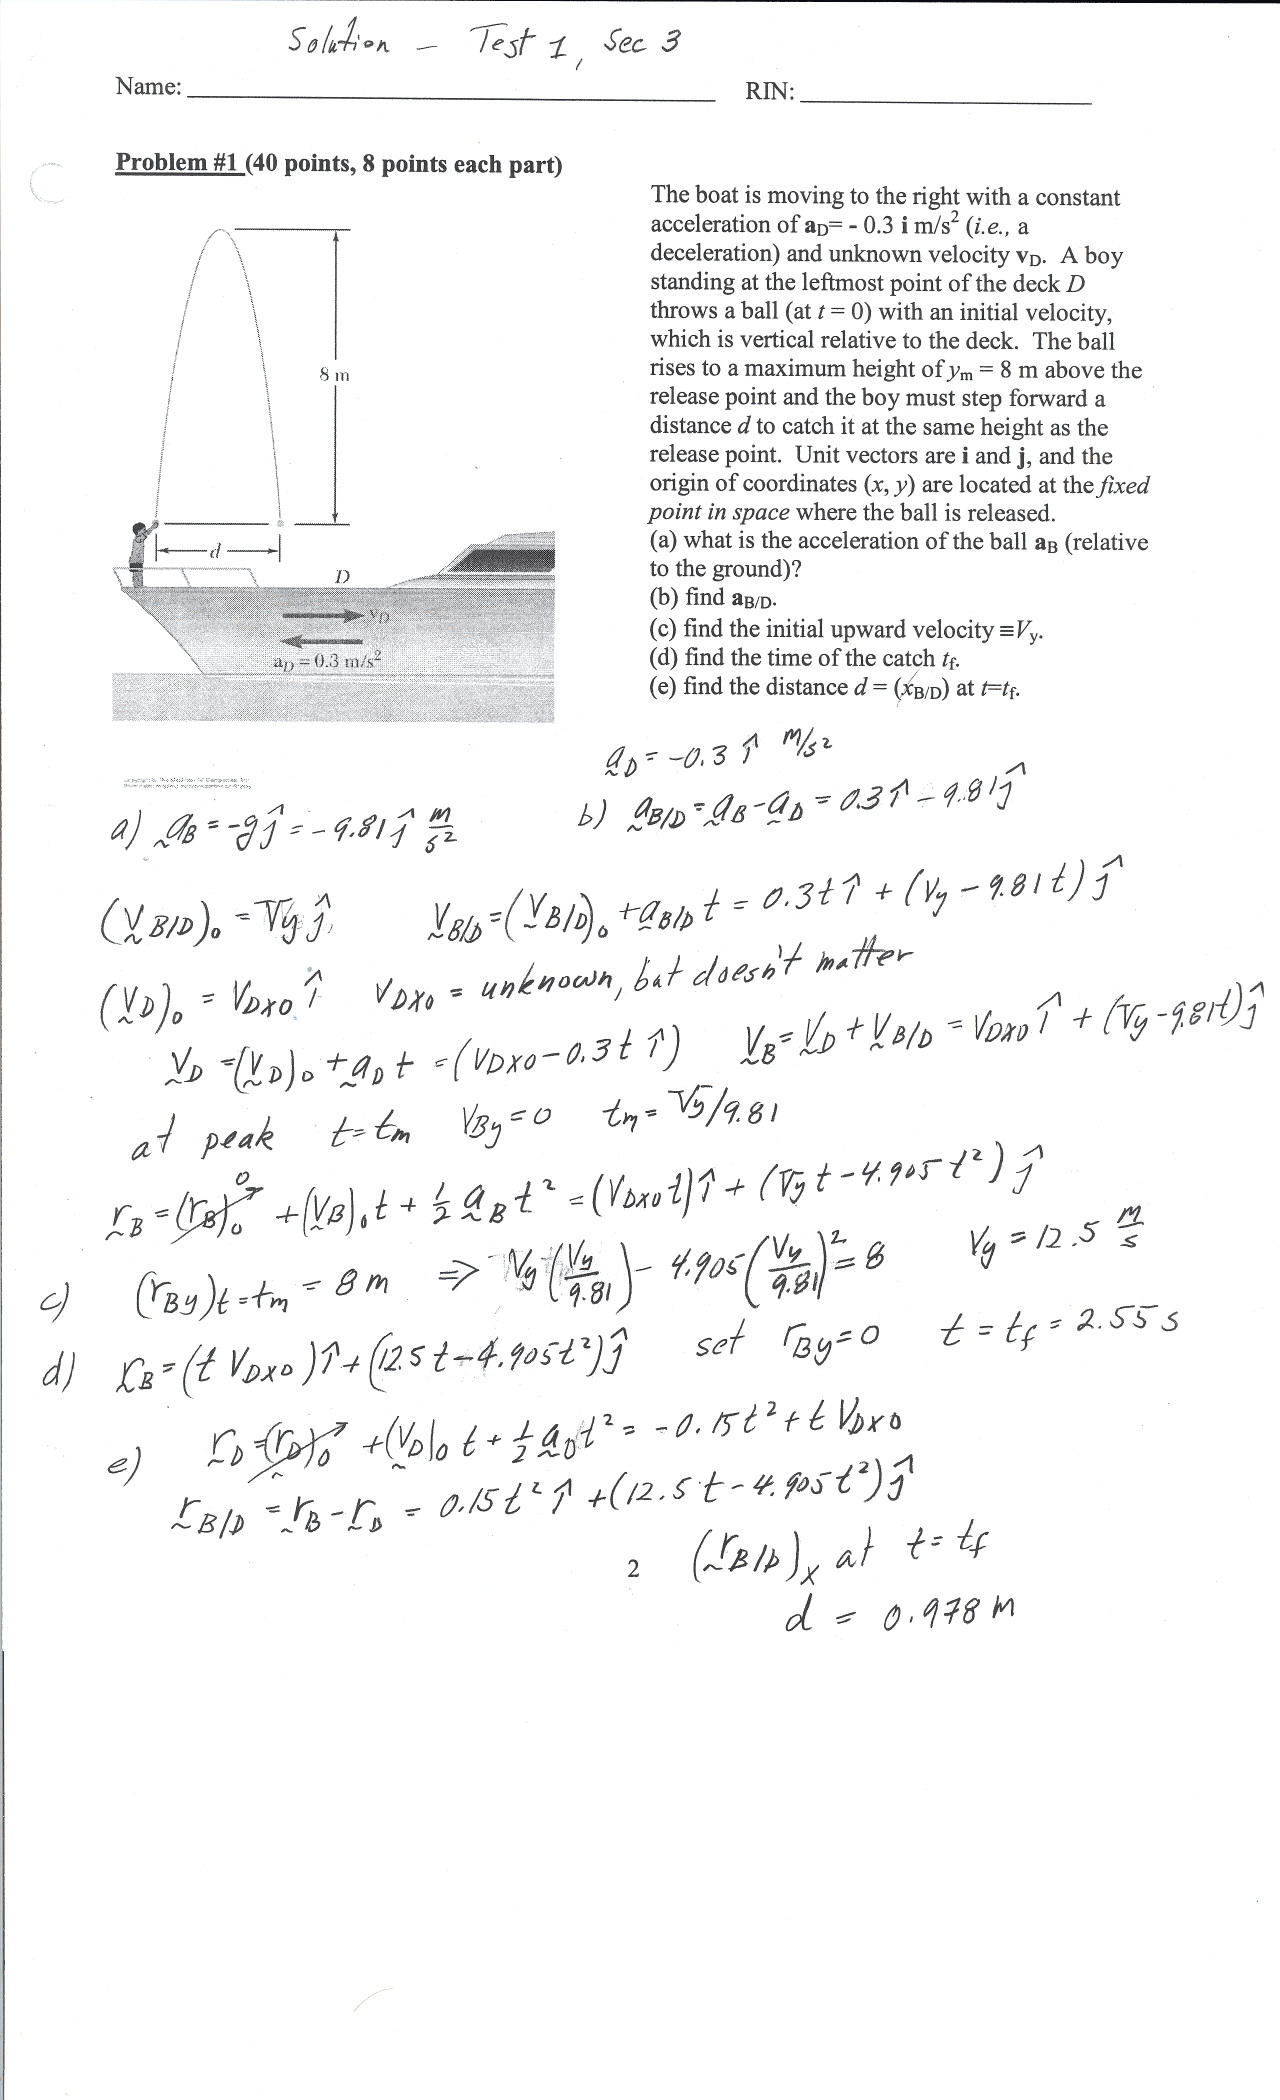 Solution - Test 1, Sec 3
Name: RIN:
Problem #1 (40 points, 8 points each part)
The boat is moving to the right with a constant
acceleration of a_D= - 0.3 i m/s² (i.e., a
deceleration) and unknown velocity v_D. A boy
standing at the leftmost point of the deck D
throws a ball (at t = 0) with an initial velocity,
which is vertical relative to the deck. The ball
rises to a maximum height of y_m = 8 m above the
release point and the boy must step forward a
distance d to catch it at the same height as the
release point. Unit vectors are i and j, and the
origin of coordinates (x, y) are located at the fixed
point in space where the ball is released.
(a) what is the acceleration of the ball a_B (relative
to the ground)?
(b) find a_B/D.
(c) find the initial upward velocity ≡V_y.
(d) find the time of the catch t_f.
(e) find the distance d = (x_B/D) at t=t_f.
8 m
d
D
v_D
a_D = 0.3 m/s²
a_D = -0.3 î m/s²
a) a_B = -g ĵ = -9.81 ĵ m/s²
b) a_B/D = a_B - a_D = 0.3 î - 9.81 ĵ
(V_B/D)_0 = V_y ĵ, V_B/D = (V_B/D)_0 + a_B/D t = 0.3t î + (V_y - 9.81t) ĵ
(V_D)_0 = V_DX0 î V_DX0 = unknown, but doesn't matter
V_D = (V_D)_0 + a_D t = (V_DX0 - 0.3t î) V_B = V_D + V_B/D = V_DX0 î + (V_y - 9.81t) ĵ
at peak t = t_m V_By = 0 t_m = V_y/9.81
r_B = (r_B)_0 0 + (V_B)_0 t + 1/2 a_B t² = (V_DX0 t) î + (V_y t - 4.905 t²) ĵ
c) (r_By)t=t_m = 8 m ⇒ V_y (V_y/9.81) - 4.905 (V_y/9.81)² = 8 V_y = 12.5 m/s
d) r_B = (t V_DX0) î + (12.5 t - 4.905t²) ĵ set r_By = 0 t = t_f = 2.55 s
e) r_D = (r_D)_0 + (V_D)_0 t + 1/2 a_D t² = -0.15t² + t V_DX0
r_B/D = r_B - r_D = 0.15t² î + (12.5t - 4.905t²) ĵ
2 (r_B/D)_X at t = t_f
d = 0.978 m